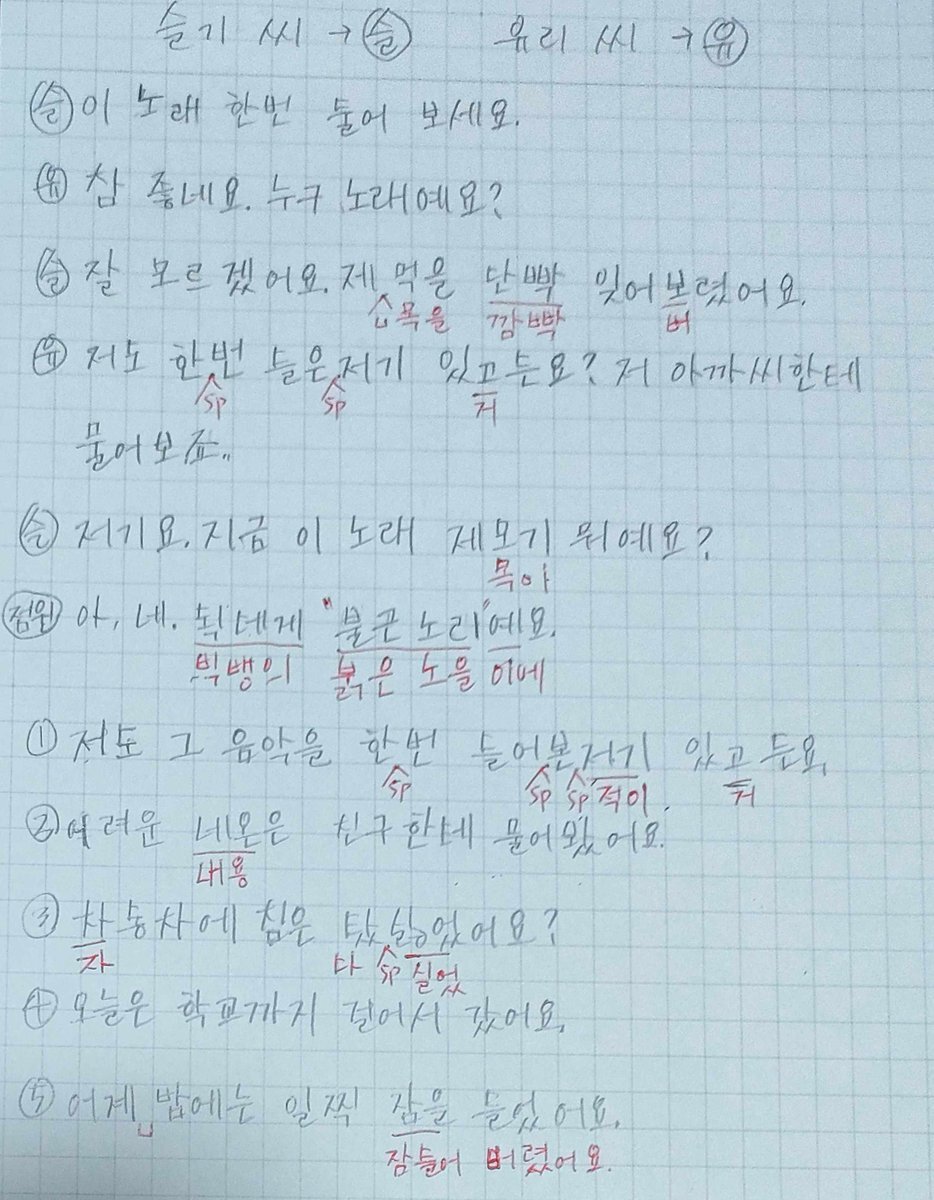 슬기 씨 → 슬 유리 씨 → 유
슬 이 노래 한번 들어 보세요.
유 참 좋네요. 누구 노래예요?
슬 잘 모르겠어요. 제먹을 단빡 잊어보렸어요.
제목을 깜빡 버
유 저도 한번 들은저기 있고든요? 저 아까씨한테
sp sp 거
물어보죠..
슬 저기요. 지금 이 노래 제모기 뭐예요?
목이
점원 아, 네. 빅데게 "불근 노리"예요.
빅뱅의 붉은 노을 이에
① 저도 그 음악을 한번 들어본저기 있고든요.
sp sp sp 적이. 거
② 어려운 네온은 친구한테 물어봤어요.
내용
③ 차동차에 짐은 탔싫었어요?
자 다 sp 실었
④ 오늘은 학교까지 걸어서 갔어요.
⑤ 어제 밥에는 일찍 잠을 들었어요.
잠들어 버렸어요.